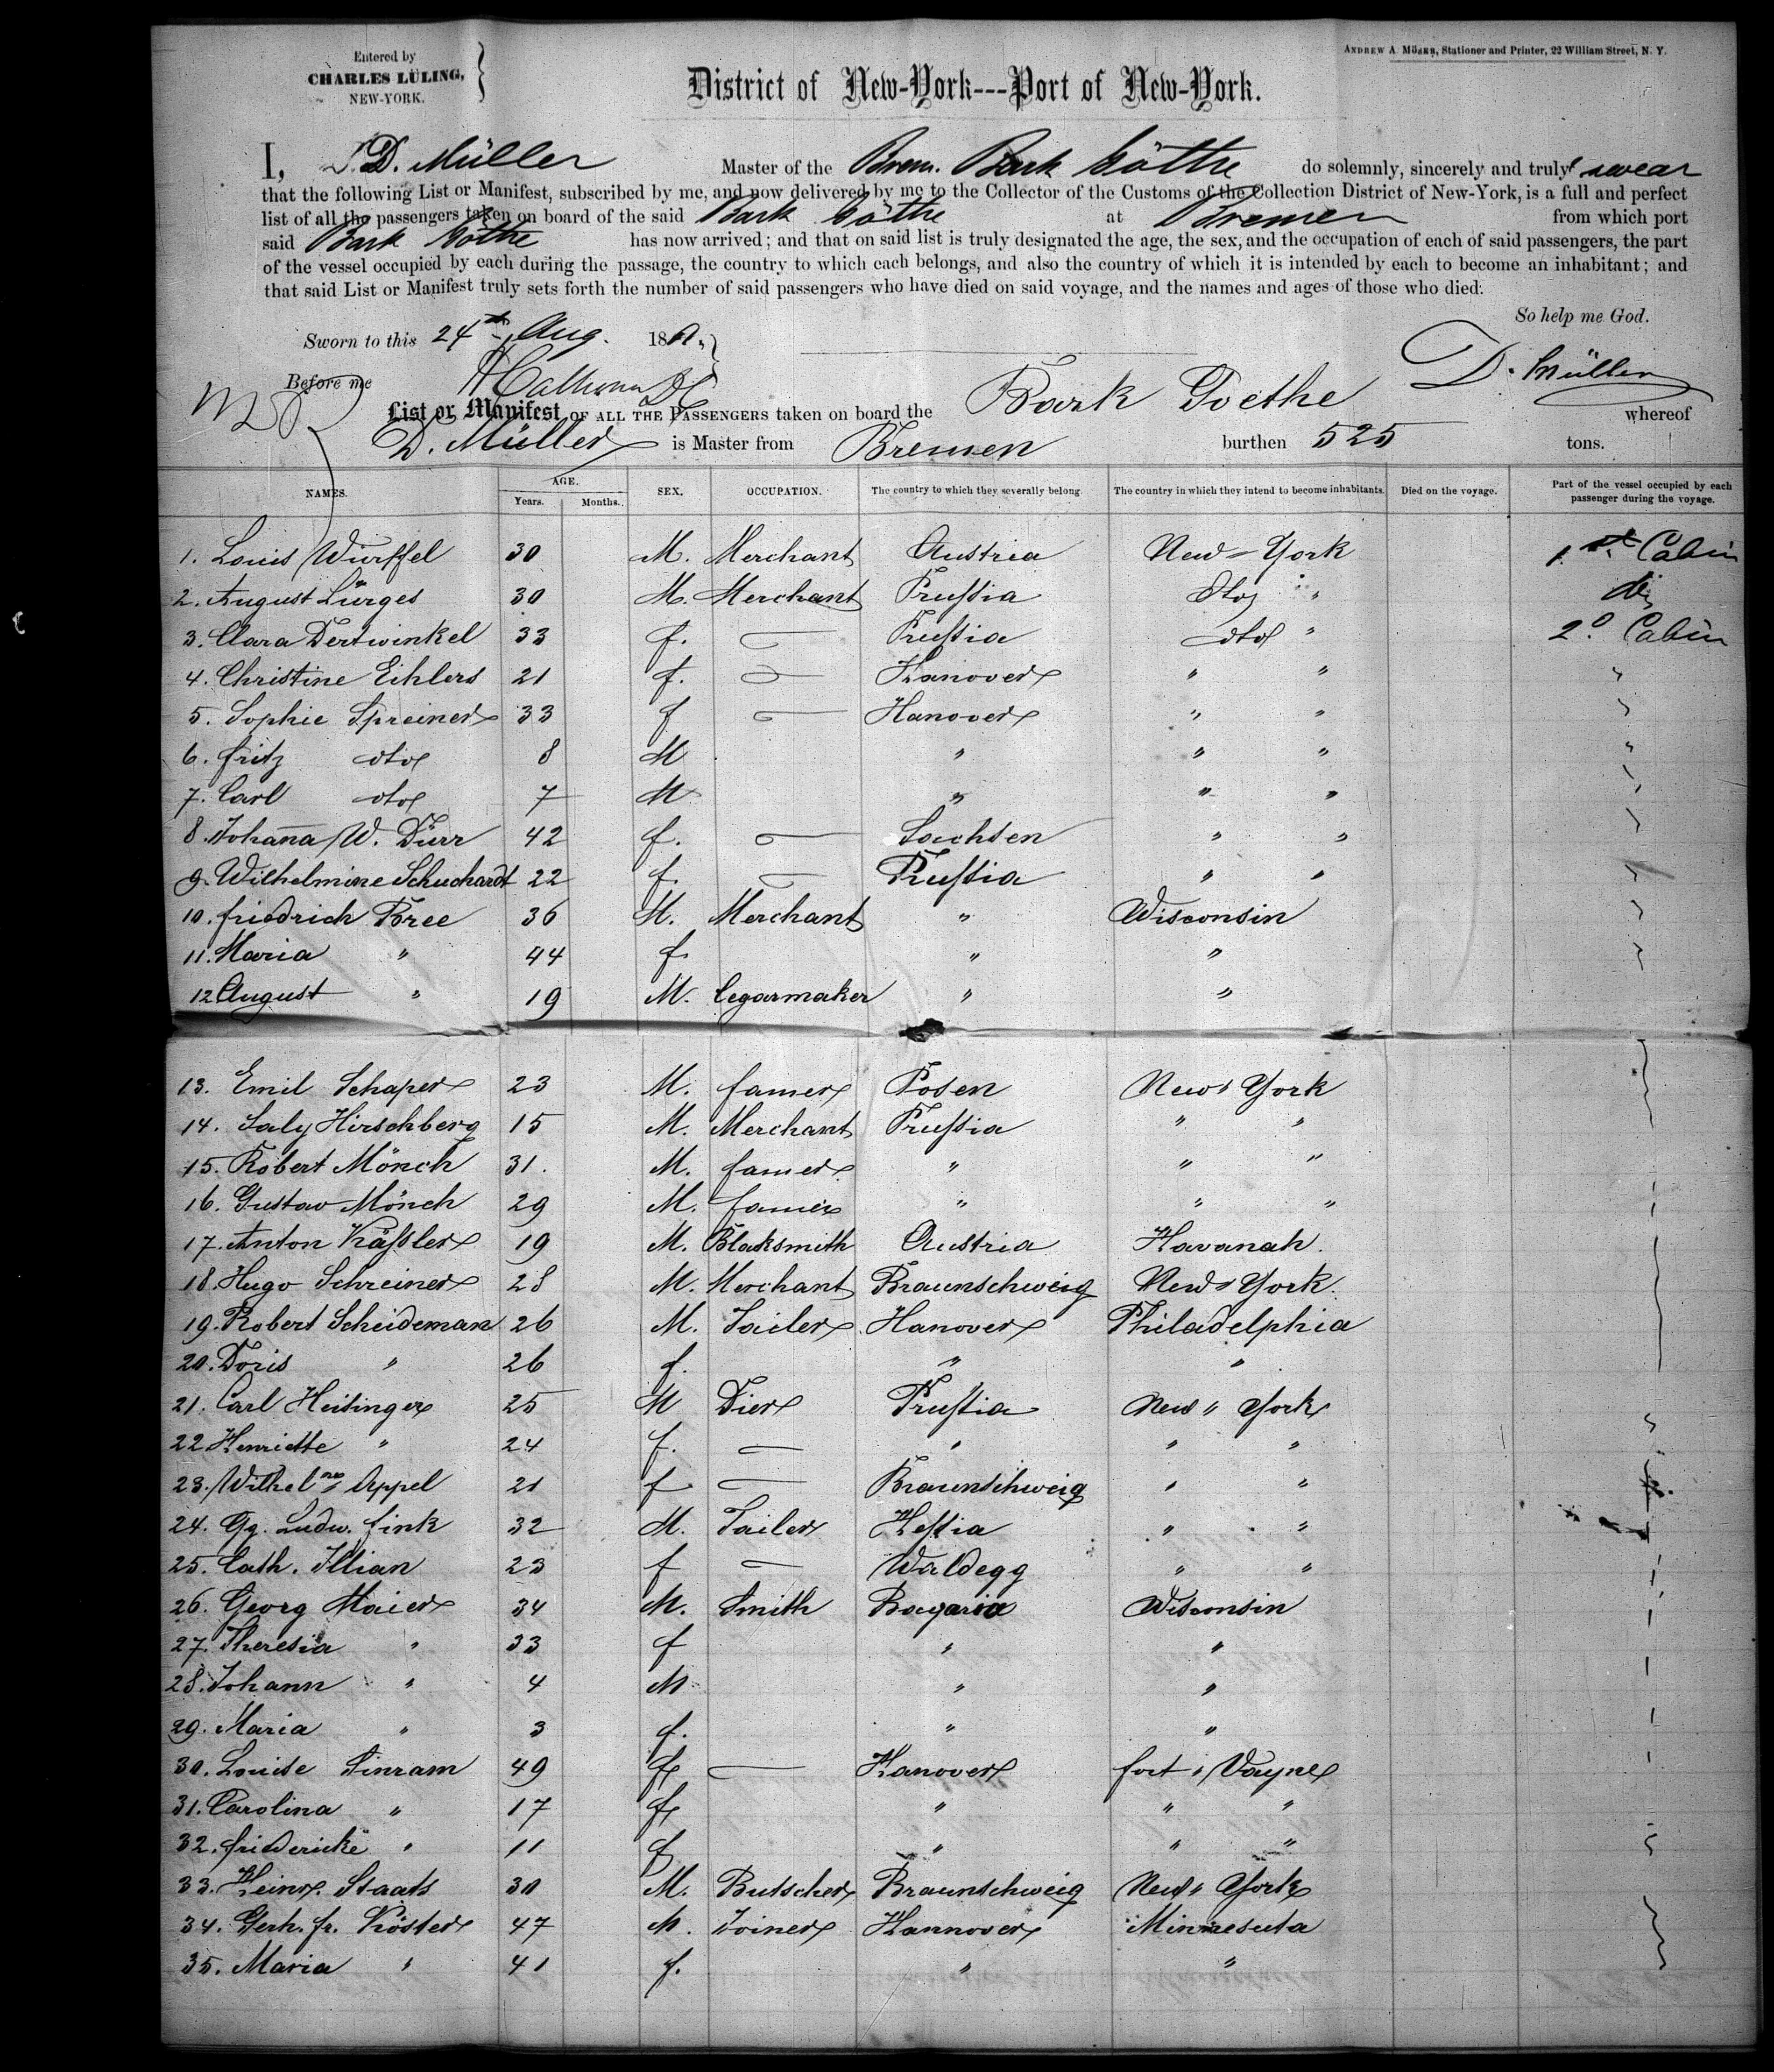 Entered by
CHARLES LÜLING,
NEW-YORK.
ANDREW A MÖSER, Stationer and Printer, 22 William Street, N. Y.
District of New-York---Port of New-York.
I, D. Müller Master of the Brem. Bark Göthe do solemnly, sincerely and truly swear
that the following List or Manifest, subscribed by me, and now delivered by me to the Collector of the Customs of the Collection District of New-York, is a full and perfect
list of all the passengers taken on board of the said Bark Göthe at Bremen from which port
said Bark Göthe has now arrived; and that on said list is truly designated the age, the sex, and the occupation of each of said passengers, the part
of the vessel occupied by each during the passage, the country to which each belongs, and also the country of which it is intended by each to become an inhabitant; and
that said List or Manifest truly sets forth the number of said passengers who have died on said voyage, and the names and ages of those who died.
So help me God.
Sworn to this 24th Aug. 18
Before me D. Müller
List or Manifest OF ALL THE PASSENGERS taken on board the Bark Goethe whereof
D. Müller is Master from Bremen burthen 525 tons.
NAMES. AGE. Years. Months. SEX. OCCUPATION. The country to which they severally belong. The country in which they intend to become inhabitants. Died on the voyage. Part of the vessel occupied by each passenger during the voyage.
1. Louis Würffel 30 M. Merchant Austria New-York 1st Cabin
2. August Lürges 30 M. Merchant Prussia dto " do
3. Clara Dertwinkel 33 f. — Prussia dto " 2d Cabin
4. Christine Eihlers 21 f. — Hanover " " "
5. Sophie Spreiner 33 f — Hanover " " "
6. fritz dto 8 M " " " "
7. Carl dto 7 M " " " "
8. Johanna W. Dürr 42 f. — Sachsen " " "
9. Wilhelmine Schuchardt 22 f. — Prussia " " "
10. friedrich Bree 36 M. Merchant " Wisconsin "
11. Maria " 44 f. " " "
12 August " 19 M. Cegarmaker " "
13. Emil Schaper 23 M. famer Posen New York
14. Saly Hirschberg 15 M. Merchant Prussia " "
15. Robert Mönch 31. M. famer " " "
16. Gustav Mönch 29 M. famer " " "
17. Anton Kässler 19 M. Blaksmith Austria Havanah.
18. Hugo Schreiner 28 M. Merchant Braunschweig New York.
19. Robert Scheideman 26 M. Tailer Hanover Philadelphia
20. Doris " 26 f. " "
21. Carl Heitinger 25 M Dier Prussia New York
22 Henriette " 24 f. — " " "
23. Wilhelne Appel 21 f — Braunschweig " "
24. Gg. Ludw. fink 32 M. Tailer Hessia " "
25. Cath. Illian 23 f — Waldegg " "
26. Georg Maier 34 M. Smith Bayaria Wisconsin
27. Theresia " 33 f " "
28. Johann " 4 M " "
29. Maria " 3 f. " "
30. Louise Sinram 49 f — Hanover fort Vayne
31. Carolina " 17 f " " "
32. friedericke " 11 f " " "
33. Heinr. Staats 30 M. Butscher Braunschweig New York
34. Gerh. fr. Köster 47 M. Joiner Hannover Minnesuta
35. Maria " 41 f. " "